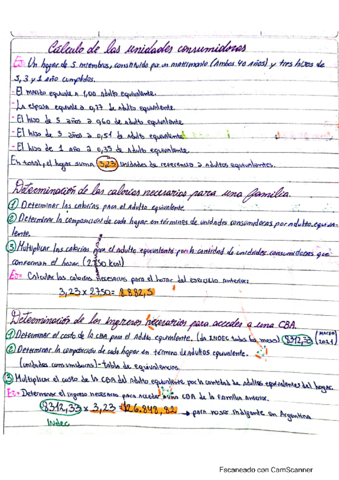 Cálculo de las unidades consumidoras
Ej: Un hogar de 5 miembros, constituido por un matrimonio (ambos 40 años) y tres hijos de
5, 3 y 1 año cumplidos.
- El marido equivale a 1,00 adulto equivalente.
- La esposa equivale a 0,77 de adulto equivalente.
- El hijo de 5 años a 0,60 de adulto equivalente.
- El hijo de 3 años a 0,51 de adulto equivalente
- El hijo de 1 año a 0,35 de adulto equivalente.
En total, el hogar suma 3,23 unidades de referencia o adultos equivalentes.
Determinación de las calorías necesarias para una familia.
① Determinar las calorías para el adulto equivalente
② Determinar la composición de cada hogar en términos de unidades consumidoras por adulto equiva-
lente.
③ Multiplicar las calorías para el adulto equivalente por la cantidad de unidades consumidoras que
conforman el hogar (2750 kcal)
Ej: Calcular las calorías necesarias para el hogar del ejercicio anterior:
3,23 x 2750 = 8.882,5
Determinación de los ingresos necesarios para acceder a una CBA.
① Determinar el costo de la CBA para el Adulto equivalente. (da INDEC todos los meses) $8312,33 (MARZO
2021)
② Determinar la composición de cada hogar en término de adultos equivalente.
(unidades consumidoras) - tabla de equivalencias.
③ Multiplicar el costo de la CBA del Adulto equivalente por la cantidad de adultos equivalentes del hogar.
Ej: Determinar el ingreso necesario para acceder a una CBA de la familia anterior.
$8312,33 x 3,23 = $26.848,82 → para no ser indigente en Argentina
Indec
Escaneado con CamScanner